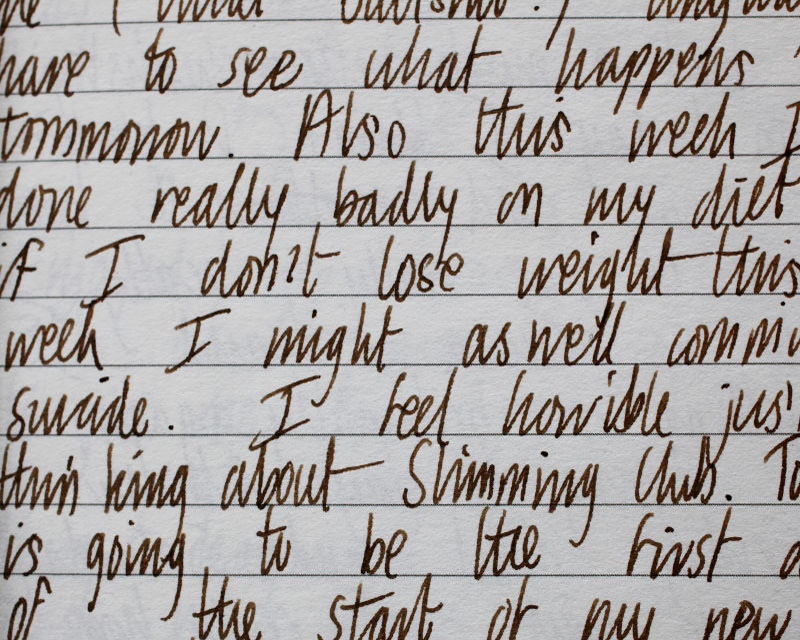 have to see what happens
tommorrow. Also this week I
done really badly on my diet
if I don't lose weight this
week I might aswell commi
suicide. I feel horrible jus
thinking about Slimming Club. To
is going to be the first
of the start of my new